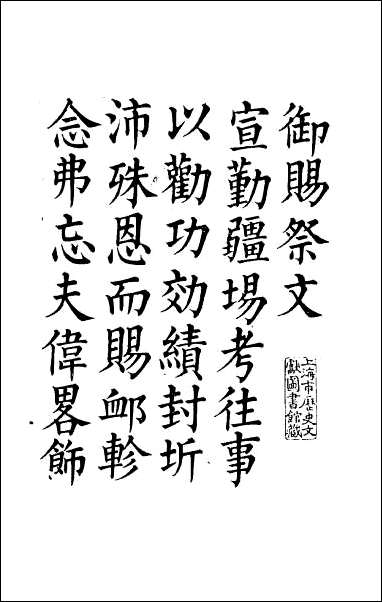 御賜祭文
宣勤疆埸考往事
以勸功効績封圻
沛殊恩而賜䘏軫
念弗忘夫偉畧飾
上海市歷史文
獻圖書館藏